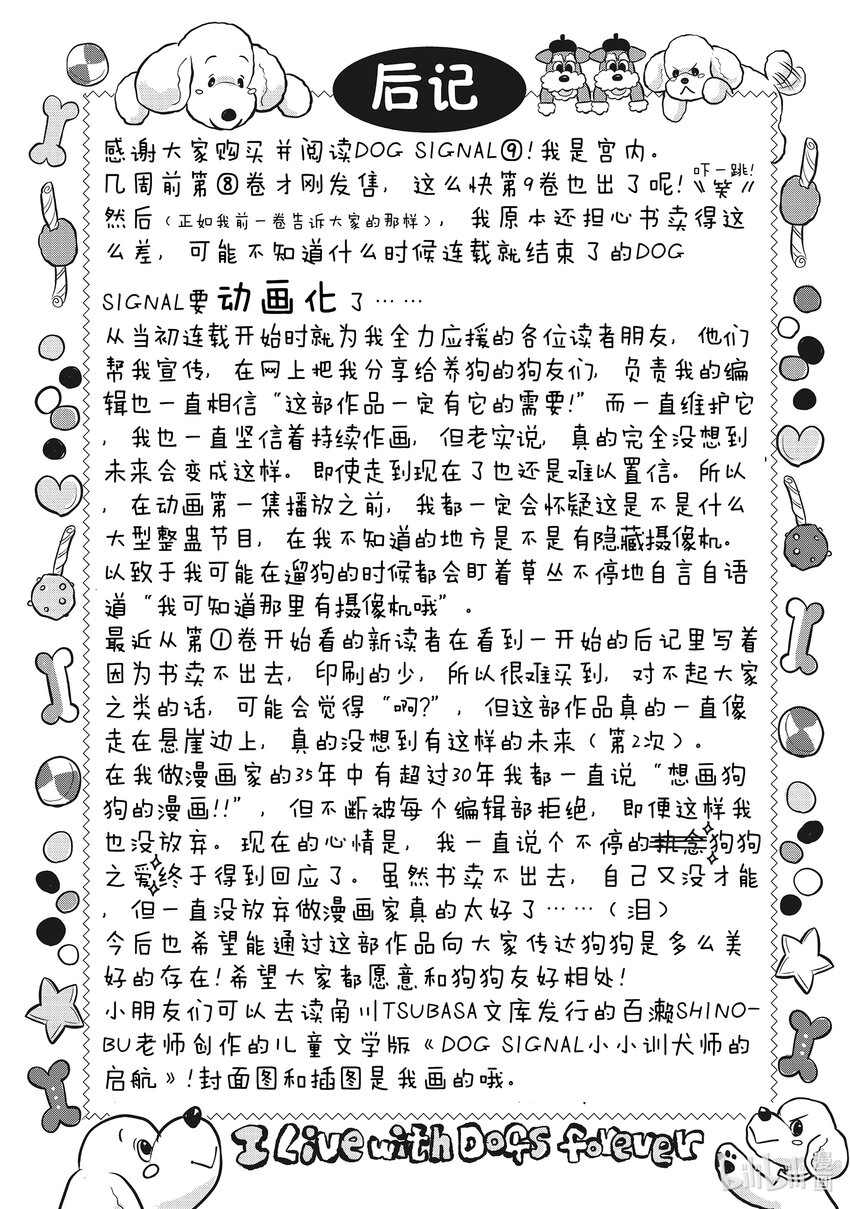 后记
感谢大家购买并阅读DOG SIGNAL⑨!我是宫内。
几周前第⑧卷才刚发售，这么快第9卷也出了呢!《笑》
吓一跳!
然后（正如我前一卷告诉大家的那样），我原本还担心书卖得这
么差，可能不知道什么时候连载就结束了的DOG
SIGNAL要动画化了……
从当初连载开始时就为我全力应援的各位读者朋友，他们
帮我宣传，在网上把我分享给养狗的狗友们，负责我的编
辑也一直相信“这部作品一定有它的需要!”而一直维护它
，我也一直坚信着持续作画，但老实说，真的完全没想到
未来会变成这样。即使走到现在了也还是难以置信。所以
，在动画第一集播放之前，我都一定会怀疑这是不是什么
大型整蛊节目，在我不知道的地方是不是有隐藏摄像机。
以致于我可能在遛狗的时候都会盯着草丛不停地自言自语
道“我可知道那里有摄像机哦”。
最近从第①卷开始看的新读者在看到一开始的后记里写着
因为书卖不出去，印刷的少，所以很难买到，对不起大家
之类的话，可能会觉得“啊?”，但这部作品真的一直像
走在悬崖边上，真的没想到有这样的未来（第2次）。
在我做漫画家的35年中有超过30年我都一直说“想画狗
狗的漫画!!”，但不断被每个编辑部拒绝，即便这样我
也没放弃。现在的心情是，我一直说个不停的执念狗狗
之爱终于得到回应了。虽然书卖不出去，自己又没才能
，但一直没放弃做漫画家真的太好了……（泪）
今后也希望能通过这部作品向大家传达狗狗是多么美
好的存在!希望大家都愿意和狗狗友好相处!
小朋友们可以去读角川TSUBASA文库发行的百濑SHINO-
BU老师创作的儿童文学版《DOG SIGNAL小小训犬师的
启航》!封面图和插图是我画的哦。
I Live with Dogs forever
bilibili漫画